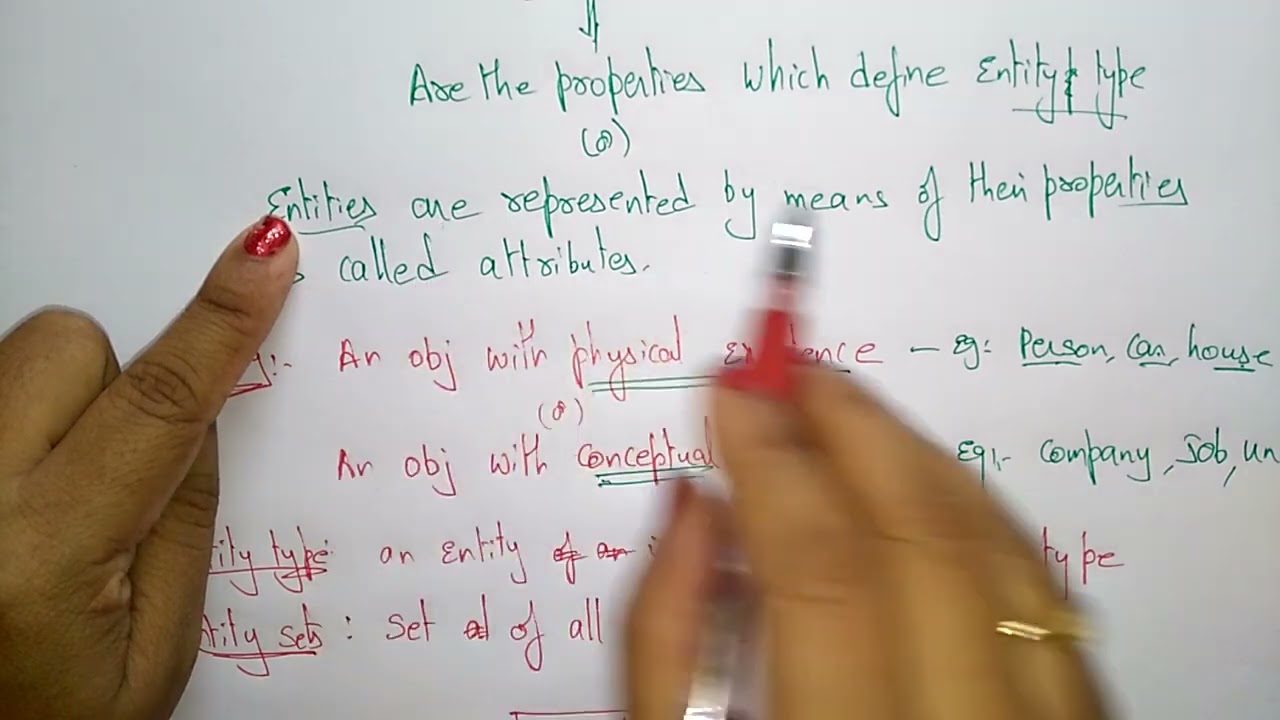 Are the properties which define Entity type
(or)
Entities are represented by means of their properties
called attributes.
An obj with physical – eg: Person, Car, house
(or)
An obj with conceptual Eg:- Company, Job, un
ity type: an Entity type
ntity sets : set of all